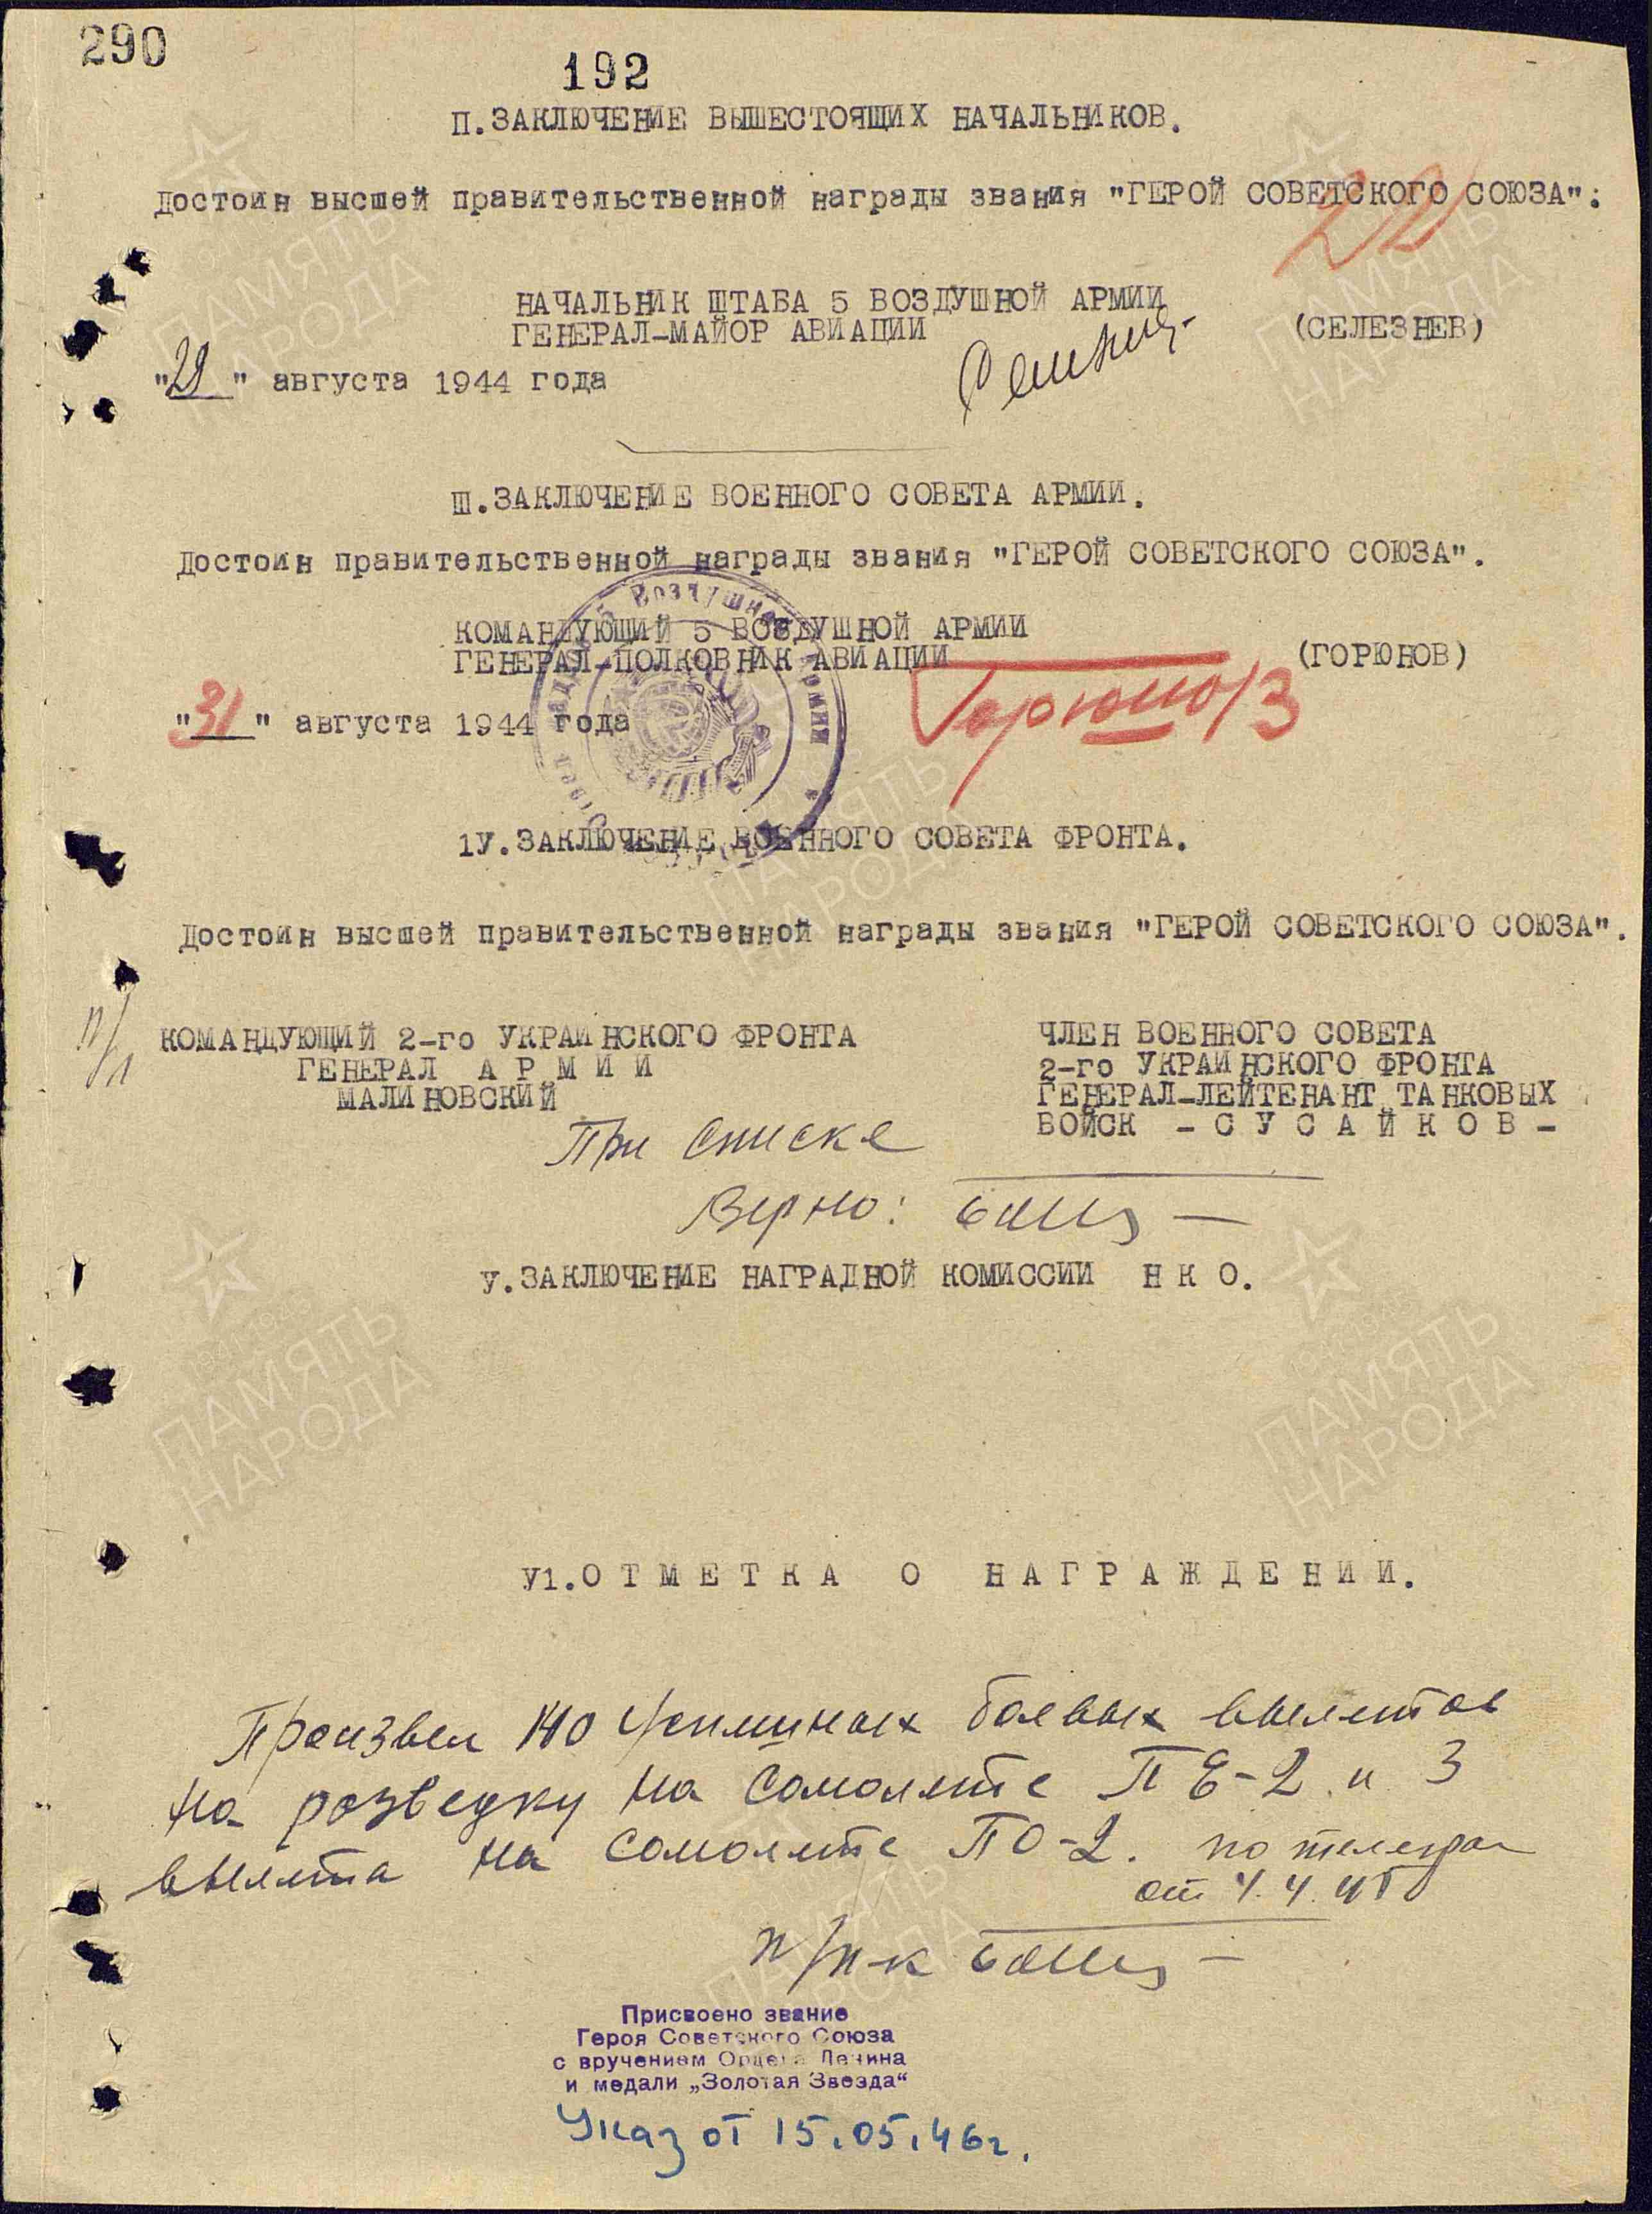 290
192
П.ЗАКЛЮЧЕНИЕ ВЫШЕСТОЯЩИХ НАЧАЛЬНИКОВ.
Достоин высшей правительственной награды звания "ГЕРОЙ СОВЕТСКОГО СОЮЗА":
22
НАЧАЛЬНИК ШТАБА 5 ВОЗДУШНОЙ АРМИИ
ГЕНЕРАЛ-МАЙОР АВИАЦИИ (СЕЛЕЗНЕВ)
"29" августа 1944 года
Ш.ЗАКЛЮЧЕНИЕ ВОЕННОГО СОВЕТА АРМИИ.
Достоин правительственной награды звания "ГЕРОЙ СОВЕТСКОГО СОЮЗА".
КОМАНДУЮЩИЙ 5 ВОЗДУШНОЙ АРМИИ
ГЕНЕРАЛ-ПОЛКОВНИК АВИАЦИИ (ГОРЮНОВ)
Горюнов
"31" августа 1944 года
1У.ЗАКЛЮЧЕНИЕ ВОЕННОГО СОВЕТА ФРОНТА.
Достоин высшей правительственной награды звания "ГЕРОЙ СОВЕТСКОГО СОЮЗА".
п/п КОМАНДУЮЩИЙ 2-го УКРАИНСКОГО ФРОНТА
ГЕНЕРАЛ А Р М И И
МАЛИНОВСКИЙ
ЧЛЕН ВОЕННОГО СОВЕТА
2-го УКРАИНСКОГО ФРОНТА
ГЕНЕРАЛ-ЛЕЙТЕНАНТ ТАНКОВЫХ
ВОЙСК - С У С А Й К О В -
При списке
Верно:
У.ЗАКЛЮЧЕНИЕ НАГРАДНОЙ КОМИССИИ Н К О.
У1.О Т М Е Т К А О Н А Г Р А Ж Д Е Н И И.
Произвел 140 успешных боевых вылетов
на розведку на самолете ПЕ-2 и 3
вылета на самолете ПО-2. по телеграм
от 4.4.45
п/п-к
Присвоено звание
Героя Советского Союза
с вручением Ордена Ленина
и медали „Золотая Звезда“
Указ от 15.05.46г.
ПАМЯТЬ
НАРОДА